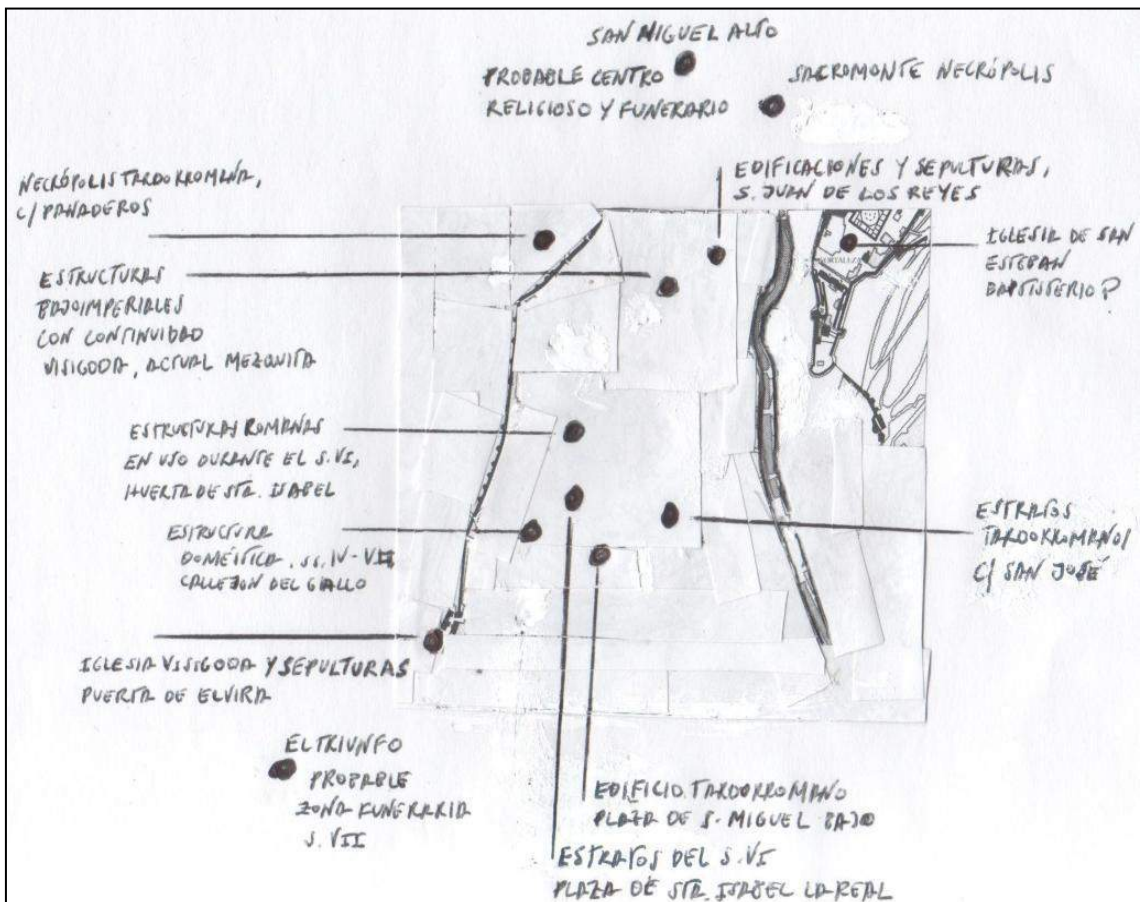 SAN MIGUEL ALTO
PROBABLE CENTRO
RELIGIOSO Y FUNERARIO
SACROMONTE NECRÓPOLIS
NECRÓPOLIS TARDORROMANA,
C/ PANADEROS
EDIFICACIONES Y SEPULTURAS,
S. JUAN DE LOS REYES
ESTRUCTURAS
BAJOIMPERIALES
CON CONTINUIDAD
VISIGODA, ACTUAL MEZQUITA
IGLESIA DE SAN
ESTEBAN
BAPTISTERIO?
ESTRUCTURAS ROMANAS
EN USO DURANTE EL S. VI,
HUERTA DE STA. ISABEL
ESTRUCTURA
DOMÉSTICA. SS. IV-VII
CALLEJON DEL GALLO
ESTRATOS
TARDORROMANOS
C/ SAN JOSÉ
IGLESIA VISIGODA Y SEPULTURAS
PUERTA DE ELVIRA
EL TRIUNFO
PROBABLE
ZONA FUNERARIA
S. VII
EDIFICIO TARDORROMANO
PLAZA DE S. MIGUEL BAJO
ESTRATOS DEL S. VI
PLAZA DE STA. ISABEL LA REAL